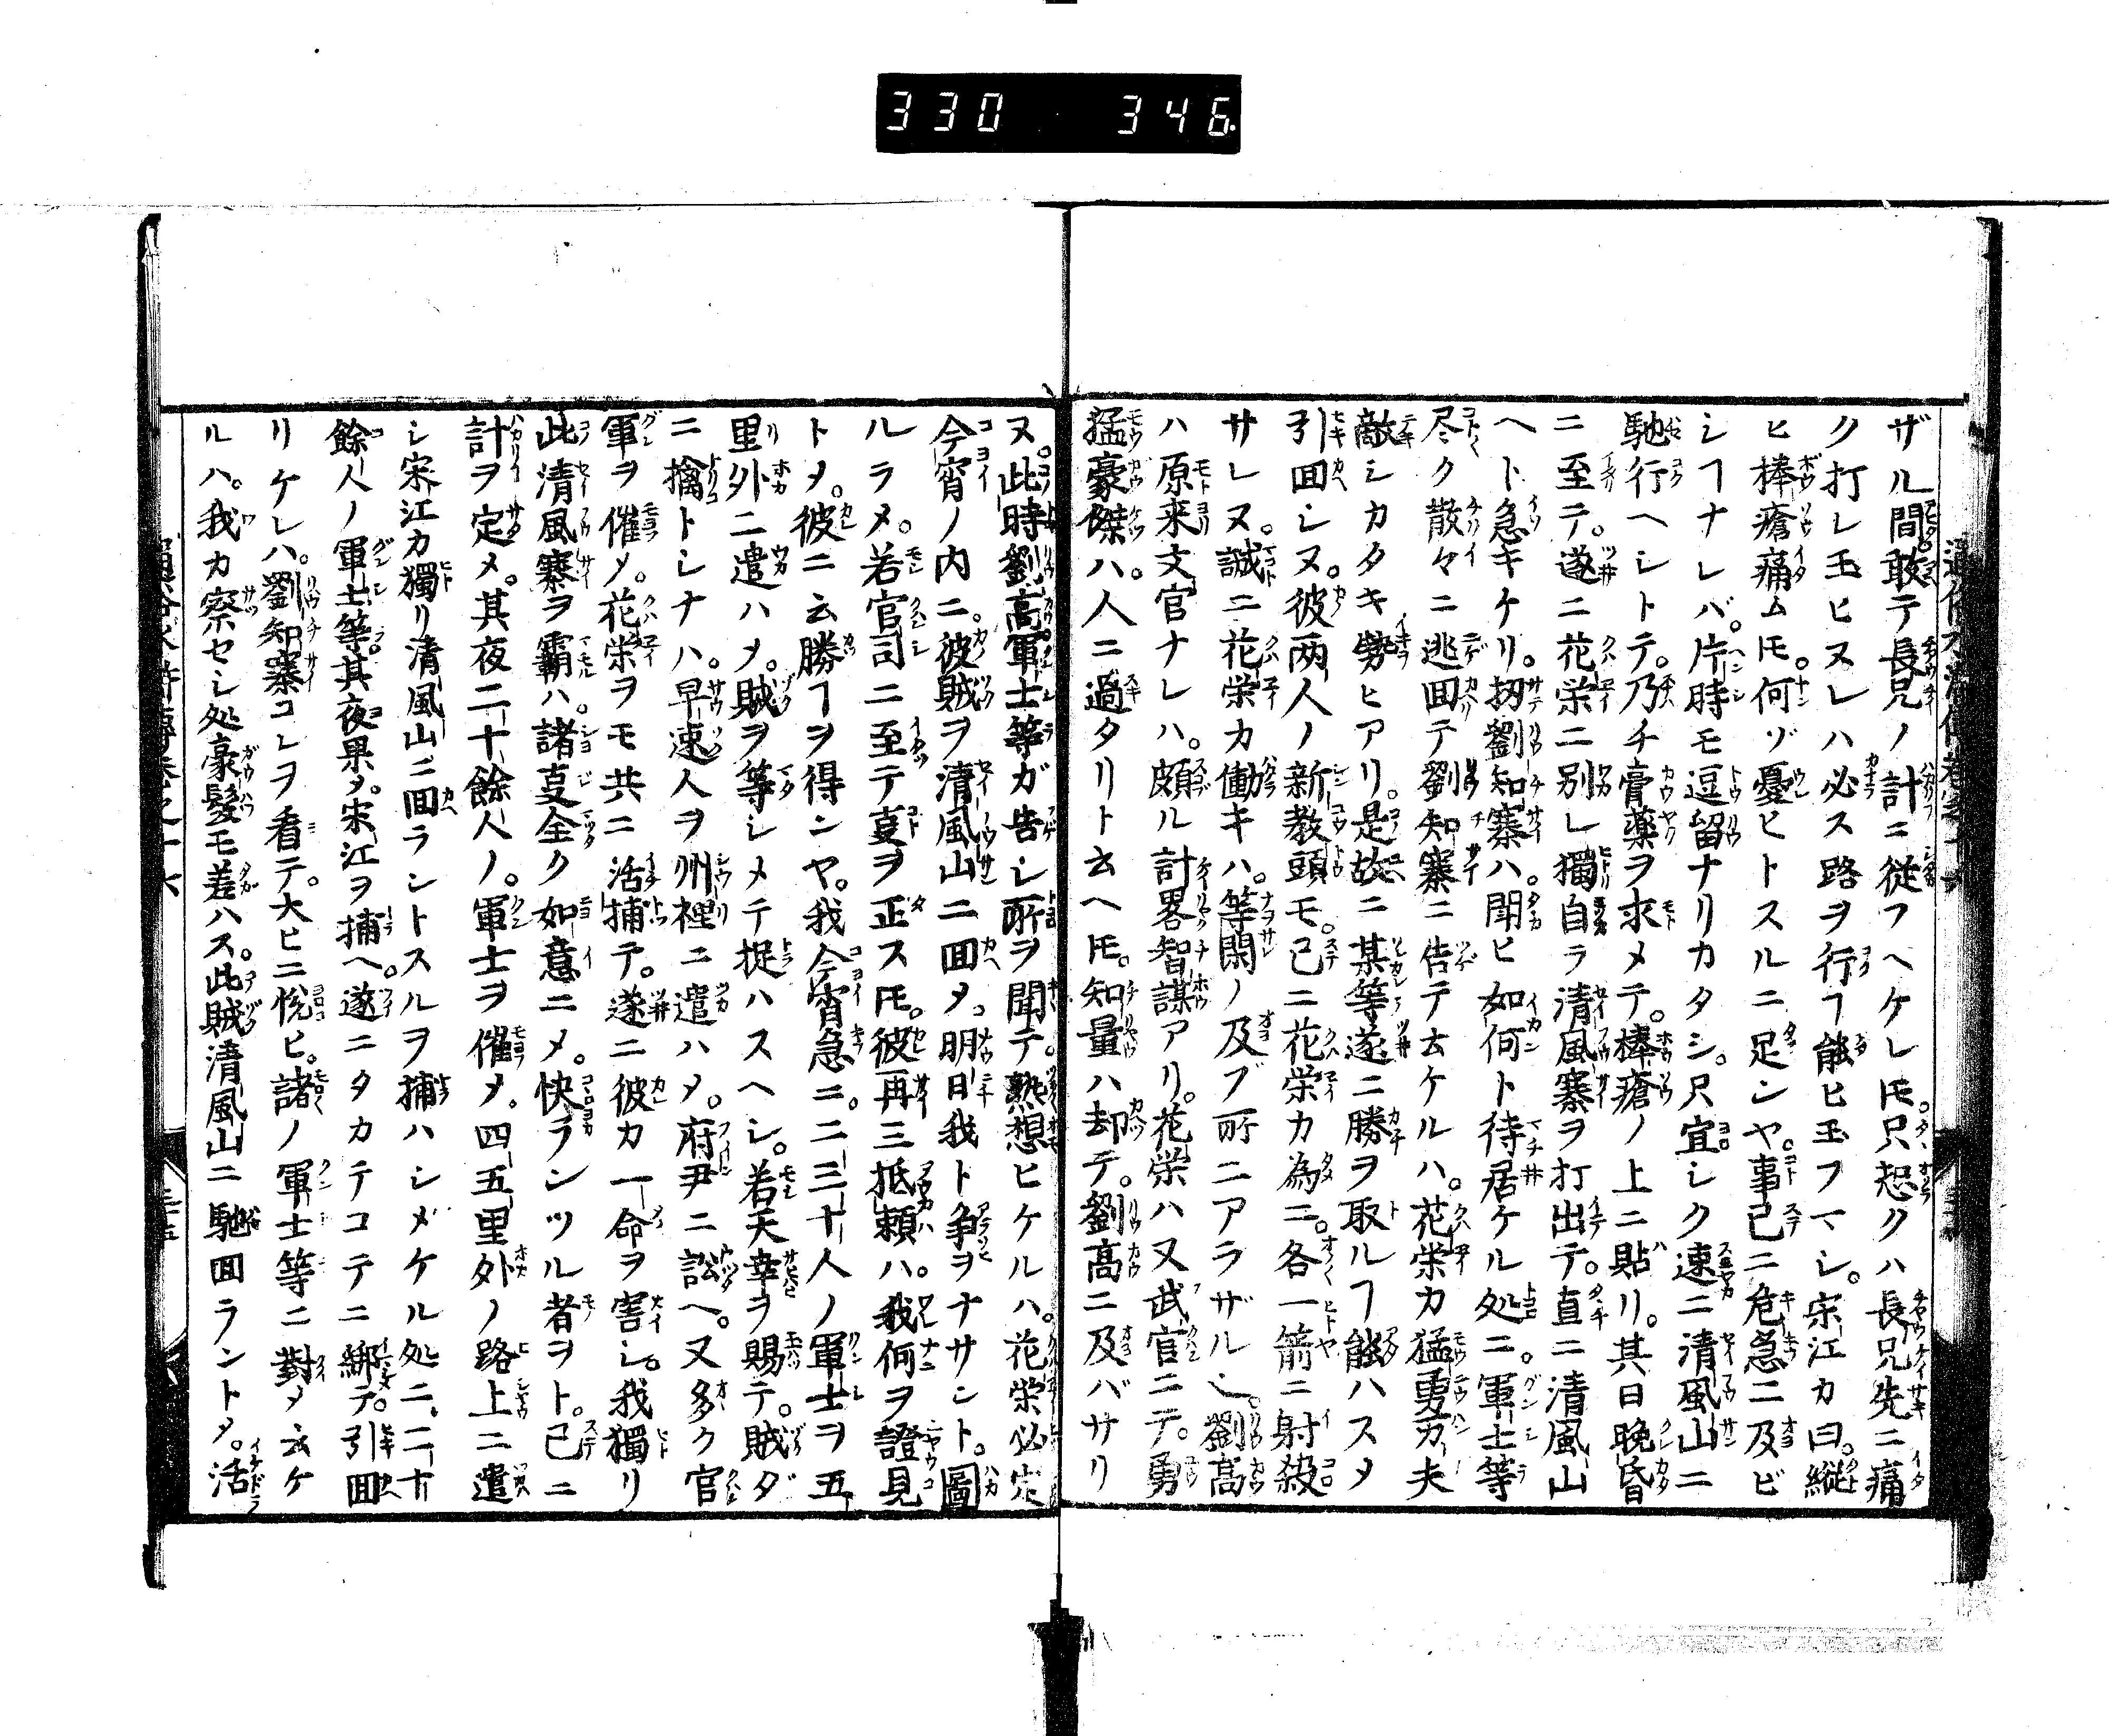 330 346
ザル間敢テ長兄ノ計ニ從フヘケレ𪜈只恐クハ長兄先ニ痛
ク打レ玉ヒヌレハ必ス路ヲ行ヿ能ヒ玉フマシ。宋江カ曰。縦
ヒ棒瘡痛ム𪜈。何ゾ憂ヒトスルニ足ンヤ。事已ニ危急ニ及ビ
シヿナレバ。片時モ逗留ナリカタシ。只宜シク速ニ清風山ニ
馳行ヘシトテ。乃チ膏藥ヲ求メテ。棒瘡ノ上ニ貼リ。其日晩昏
ニ至テ。遂ニ花栄ニ別レ獨自ラ清風寨ヲ打出テ。直ニ清風山
ヘト急キケリ。扨劉知寨ハ。聞ヒ如何ト待居ケル処ニ。軍士等
尽ク散々ニ迯回テ劉知寨ニ告テ云ケルハ。花栄カ猛勇万夫
敵シカタキ勢ヒアリ。是故ニ某等遂ニ勝ヲ取ルヿ能ハスメ
引回シヌ。彼両人ノ新教頭モ。已ニ花栄カ為ニ。各一箭ニ射殺
サレヌ。誠ニ花栄カ働キハ。等閑ノ及ブ所ニアラザル也。劉高
ハ原来文官ナレハ。頗ル計畧智謀アリ。花栄ハ又武官ニテ。勇
猛豪傑ハ。人ニ過タリト云ヘ𪜈。知量ハ却テ。劉高ニ及バサリ
ヌ。此時劉高軍士等ガ告シ所ヲ聞テ。熟想ヒケルハ。花栄必定
今宵ノ内ニ。彼賊ヲ清風山ニ回メ。明日我ト争ヲナサント。圖
ルラメ。若官司ニ至テ叓ヲ正ス𪜈。彼再三抵頼ハ。我何ヲ證見
トメ。彼ニ云勝ヿヲ得ンヤ。我今宵急ニ。二三十人ノ軍士ヲ五
里外ニ遣ハメ。賊ヲ等シメテ捉ハスヘシ。若天幸ヲ賜テ。賊ダ
ニ擒トレナハ。早速人ヲ州裡ニ遣ハメ。府尹ニ訟ヘ。又多ク官
軍ヲ催メ。花栄ヲモ共ニ活捕テ。遂ニ彼カ一命ヲ害シ。我獨リ
此清風寨ヲ覇ハ。諸叓全ク如意ニメ。快ランツル者ヲト。已ニ
計ヲ定メ。其夜二十餘人ノ。軍士ヲ催メ。四五里外ノ路上ニ遣
シ宋江カ獨リ清風山ニ回ラントスルヲ捕ハシメケル処ニ。二十
餘人ノ軍士等。其夜果タ。宋江ヲ捕ヘ。遂ニタカテコテニ綁テ。引回
リケレハ。劉知寨コレヲ看テ。大ヒニ悦ヒ。諸ノ軍士等ニ對メ云ケ
ルハ。我カ察セシ処豪髪モ差ハス。此賊清風山ニ馳回ラントメ。活